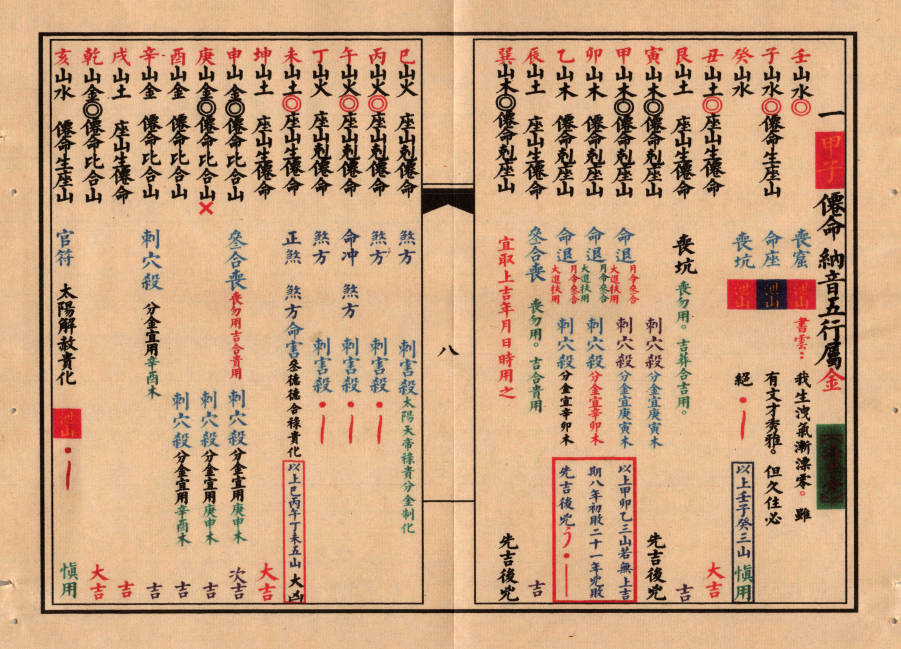 一 甲子 僊命 納音五行屬金
壬山水◎ 喪窟 洩山 書雲：我生洩氣漸漂零。雖
子山水◎僊命生座山 命座 洩山 有文才秀雅。但久住必
癸山水 喪坑 洩山 絕 以上壬子癸三山 慎用
丑山土◎座山生僊命 大吉
艮山土 座山生僊命 喪坑 喪勿用。吉葬合吉用。 吉
寅山木◎僊命剋座山 刺穴殺 分金宜庚寅木 先吉後兇
甲山木◎僊命剋座山 命退 月令叅合大進扶用 刺穴殺 分金宜庚寅木 以上甲卯乙三山若無上吉
卯山木 僊命剋座山 命退 月令叅合大進扶用 刺穴殺 分金宜辛卯木 期八年初敗二十一年兇敗
乙山木 僊命剋座山 命退 月令叅合大進扶用 刺穴殺 分金宜辛卯木 先吉後兇
辰山土 座山生僊命 叅合喪 喪勿用。吉合貴用 吉
巽山木◎僊命剋座山 宜取上吉年月日時用之 先吉後兇
八
巳山火 座山剋僊命 煞方 刺害殺 太陽天帝祿貴分金制化
丙山火◎座山剋僊命 煞方 刺害殺
午山火◎座山剋僊命 命冲 煞方 刺害殺
丁山火 座山剋僊命 煞方 刺害殺
未山土◎座山生僊命 正煞 煞方命害 叅德德合祿貴化 以上巳丙午丁未五山 大凶
坤山土 座山生僊命 大吉
申山金◎僊命比合山 叅合喪 喪勿用吉合貴用 刺穴殺 分金宜用庚申木 次吉
庚山金◎僊命比合山 刺穴殺 分金宜用庚申木 吉
酉山金 僊命比合山 刺穴殺 分金宜用辛酉木 吉
辛山金 僊命比合山 刺穴殺 分金宜用辛酉木 吉
戌山土 座山生僊命 吉
乾山金◎僊命比合山 大吉
亥山水 僊命生座山 官符 太陽解赦貴化 洩山 慎用